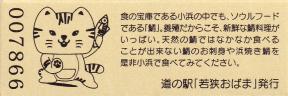 007866
食の宝庫である小浜の中でも、ソウルフード
である「鯖」。養殖だからこそ、新鮮な鯖料理が
いっぱい。天然の鯖ではなかなか食べる
ことが出来ない鯖のお刺身や浜焼き鯖を
是非小浜で食べてみてください。
道の駅「若狭おばま」発行